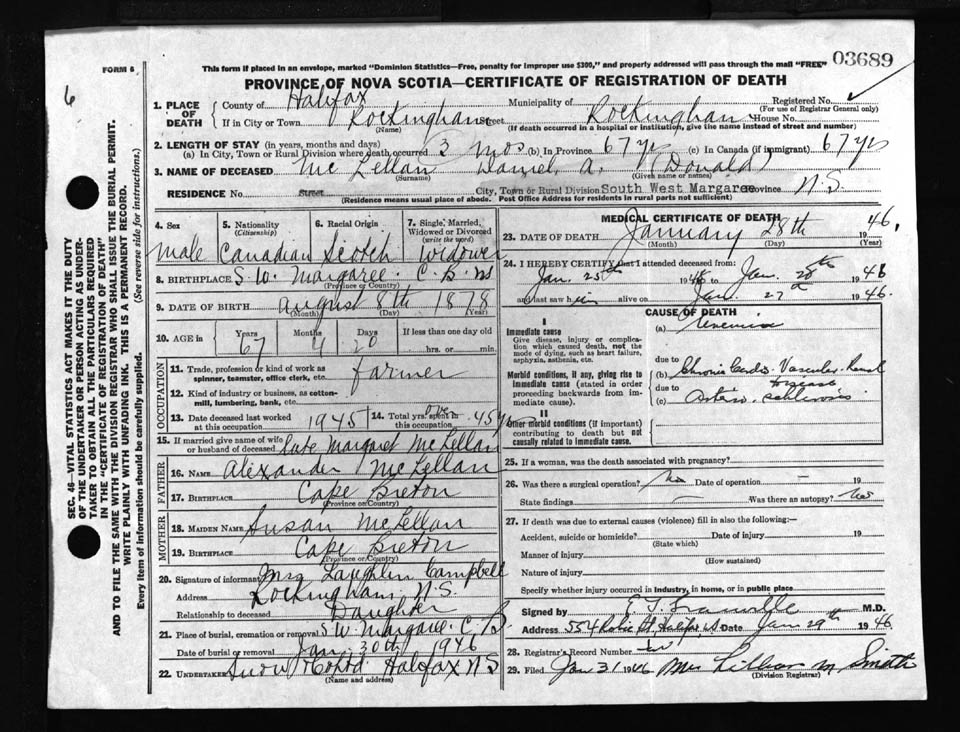 FORM 6
This form if placed in an envelope, marked "Dominion Statistics—Free, penalty for improper use $300," and properly addressed will pass through the mail "FREE"
03689
6
PROVINCE OF NOVA SCOTIA—CERTIFICATE OF REGISTRATION OF DEATH
1. PLACE OF DEATH County of Halifax Municipality of Rockingham Registered No.
(For use of Registrar General only)
If in City or Town Rockingham Street House No.
(Name) (If death occurred in a hospital or institution, give the name instead of street and number)
2. LENGTH OF STAY (in years, months and days)
(a) In City, Town or Rural Division where death occurred 3 mos (b) In Province 67 yrs (c) In Canada (if immigrant) 67 yrs
3. NAME OF DECEASED Mc Lellan Daniel A. (Donald)
(Surname) (Given name or names)
RESIDENCE No. Street City, Town or Rural Division South West Margaree Province N.S.
(Residence means usual place of abode. Post Office Address for residents in rural parts not sufficient)
4. Sex 5. Nationality 6. Racial Origin 7. Single, Married, Widowed or Divorced
(Citizenship) (write the word)
Male Canadian Scotch Widower
8. BIRTHPLACE S.W. Margaree C.B. NS
(Province or Country)
9. DATE OF BIRTH August 8th 1878
(Month) (Day) (Year)
10. AGE in Years Months Days If less than one day old
67 4 20 hrs. or min.
OCCUPATION
11. Trade, profession or kind of work as spinner, teamster, office clerk, etc. farmer
12. Kind of industry or business, as cotton-mill, lumbering, bank, etc.
13. Date deceased last worked at this occupation 1945 14. Total yrs. spent in this occupation over 45 yrs
15. If married give name of wife or husband of deceased late Margaret McLellan
FATHER
16. NAME Alexander McLellan
17. BIRTHPLACE Cape Breton
(Province or Country)
MOTHER
18. MAIDEN NAME Susan McLellan
19. BIRTHPLACE Cape Breton
(Province or Country)
20. Signature of informant Mrs Laughlin Campbell
Address Rockingham N.S.
Relationship to deceased Daughter
21. Place of burial, cremation or removal S.W. Margaree C.B.
Date of burial or removal Jan 30th 1946
22. UNDERTAKER Snow & Co Ltd. Halifax NS
(Name and address)
MEDICAL CERTIFICATE OF DEATH
23. DATE OF DEATH January 28th 1946.
(Month) (Day) (Year)
24. I HEREBY CERTIFY that I attended deceased from
Jan. 25th 1946 to Jan. 28th 1946
and last saw him alive on Jan. 27 1946.
CAUSE OF DEATH
I
Immediate cause
Give disease, injury or complication which caused death, not the mode of dying, such as heart failure, asphyxia, asthenia, etc.
(a) Uremia
due to
Morbid conditions, if any, giving rise to immediate cause (stated in order proceeding backwards from immediate cause).
(b) Chronic Cardio-Vascular-Renal disease
due to
(c) Arterio sclerosis
II
Other morbid conditions (if important) contributing to death but not causally related to immediate cause.
25. If a woman, was the death associated with pregnancy?
26. Was there a surgical operation? No Date of operation — 19
State findings — Was there an autopsy? No
27. If death was due to external causes (violence) fill in also the following:—
Accident, suicide or homicide? Date of injury 19
(State which)
Manner of injury
(How sustained)
Nature of injury
Specify whether injury occurred in industry, in home, or in public place
Signed by E. T. Granville M.D.
Address 554 Robie St, Halifax NS Date Jan 29th 1946
28. Registrar's Record Number
29. Filed Jan 31 1946 Mrs Lillian M. Smith
(Division Registrar)
SEC. 46—VITAL STATISTICS ACT MAKES IT THE DUTY
OF THE UNDERTAKER OR PERSON ACTING AS UNDER-
TAKER TO OBTAIN ALL THE PARTICULARS REQUIRED
IN THE "CERTIFICATE OF REGISTRATION OF DEATH"
AND TO FILE THE SAME WITH THE DIVISION REGISTRAR WHO SHALL ISSUE THE BURIAL PERMIT.
WRITE PLAINLY WITH UNFADING INK. THIS IS A PERMANENT RECORD.
Every item of information should be carefully supplied. (See reverse side for instructions.)